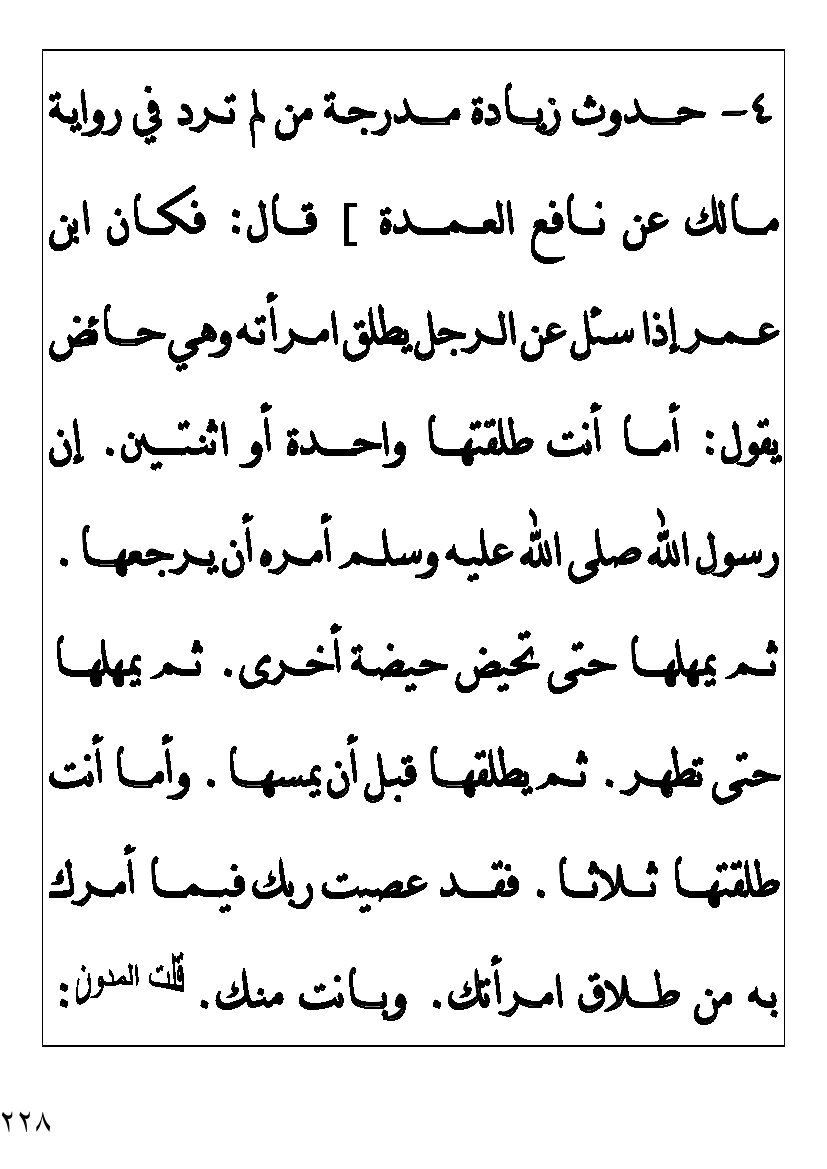 ٤- حدوث زيادة مدرجة من لم ترد في رواية
مالك عن نافع العمدة ] قال: فكان ابن
عمر إذا سئل عن الرجل يطلق امرأته وهي حائض
يقول: أما أنت طلقتها واحدة أو اثنتين. إن
رسول الله صلى الله عليه وسلم أمره أن يرجعها .
ثم يمهلها حتى تحيض حيضة أخرى. ثم يمهلها
حتى تطهر. ثم يطلقها قبل أن يمسها . وأما أنت
طلقتها ثلاثا . فقد عصيت ربك فيما أمرك
به من طلاق امرأتك. وبانت منك. قلت المدون:
٢٢٨